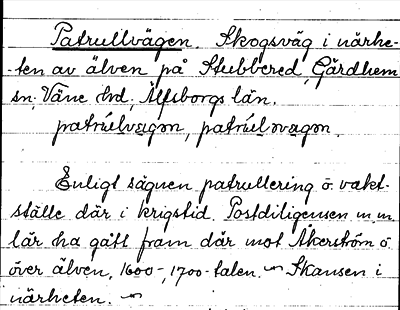 Patrullvägen. Skogsväg i närhe-
ten av älven på Stubbered, Gärdhem
sn. Väne hd, Älfsborgs län.
patrúlvagən, patrúlsvagən.
Enligt sägnen patrullering ö. vakt-
ställe där i krigstid. Postdiligensen m.m.
lär ha gått fram där mot Åkerström ö.
över älven, 1600-, 1700-talen. ~ Skansen i
närheten. ~